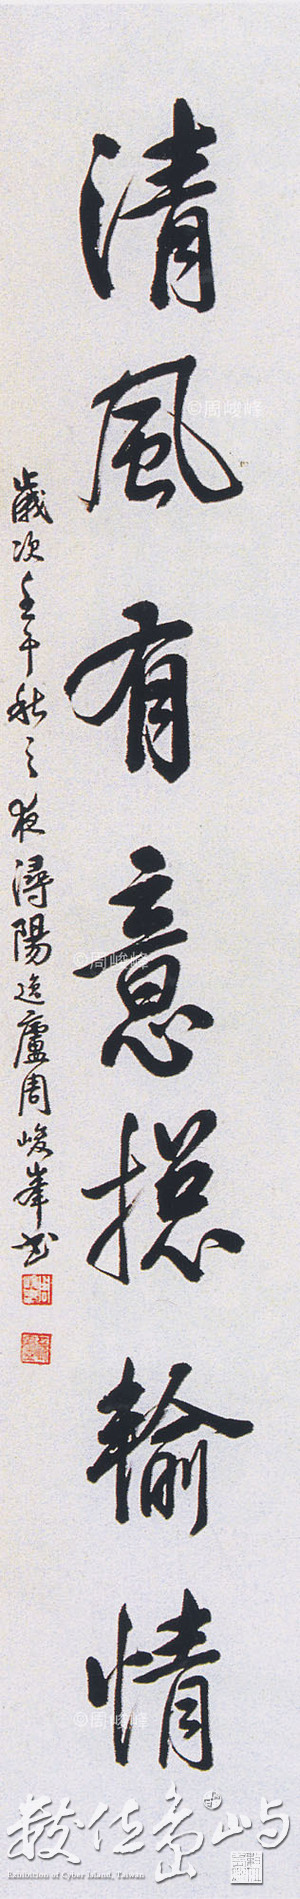 清風有意摠輸情
歲次壬午秋之夜潯陽逸廬周峻峯书
©周峻峰
©周峻峰
©周峻峰
數位島嶼
Exhibition of Cyber Island, Taiwan